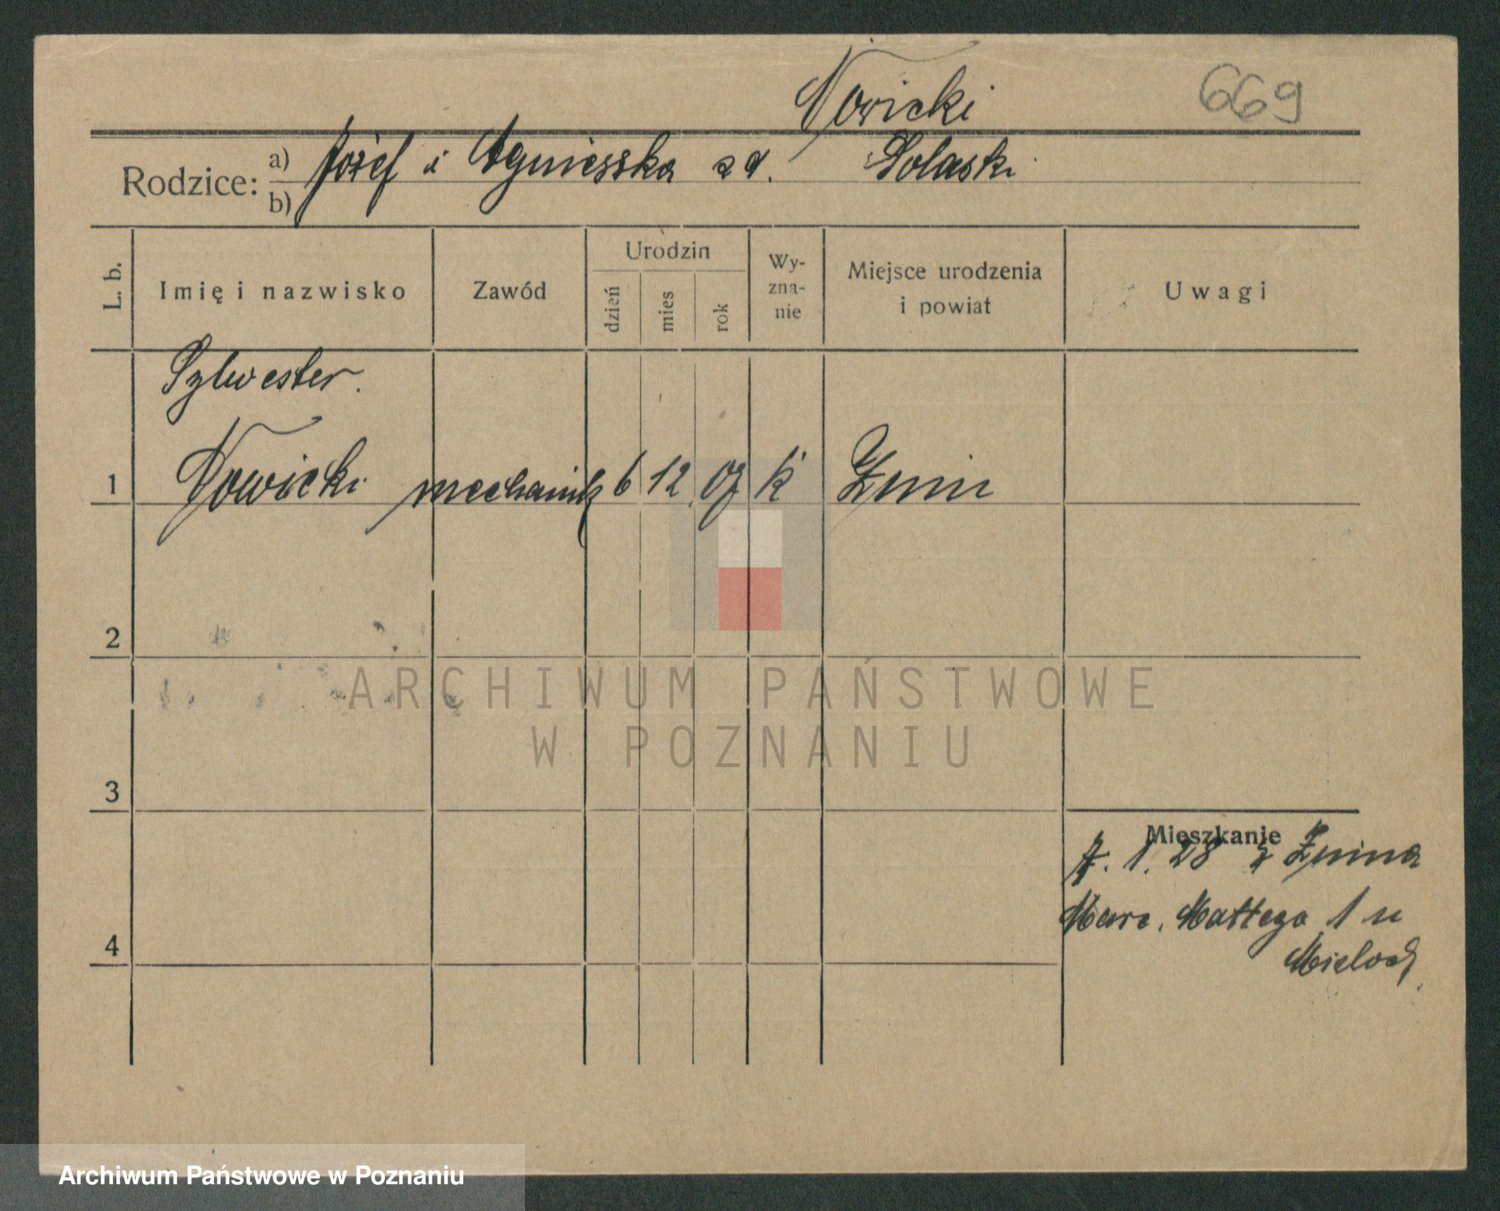 Nowicki 669
Rodzice: a) Józef i Agnieszka z d. Solaski
b)
L. b. Imię i nazwisko Zawód Urodzin dzień mies rok Wyznanie Miejsce urodzenia i powiat Uwagi
Sylwester.
1 Nowicki mechanik 6 12 07 k Żnin
2
ARCHIWUM PAŃSTWOWE
W POZNANIU
3
Mieszkanie
1. 28 z Żnina
Marc. Mottego 1 u
4
Mieloch
Archiwum Państwowe w Poznaniu